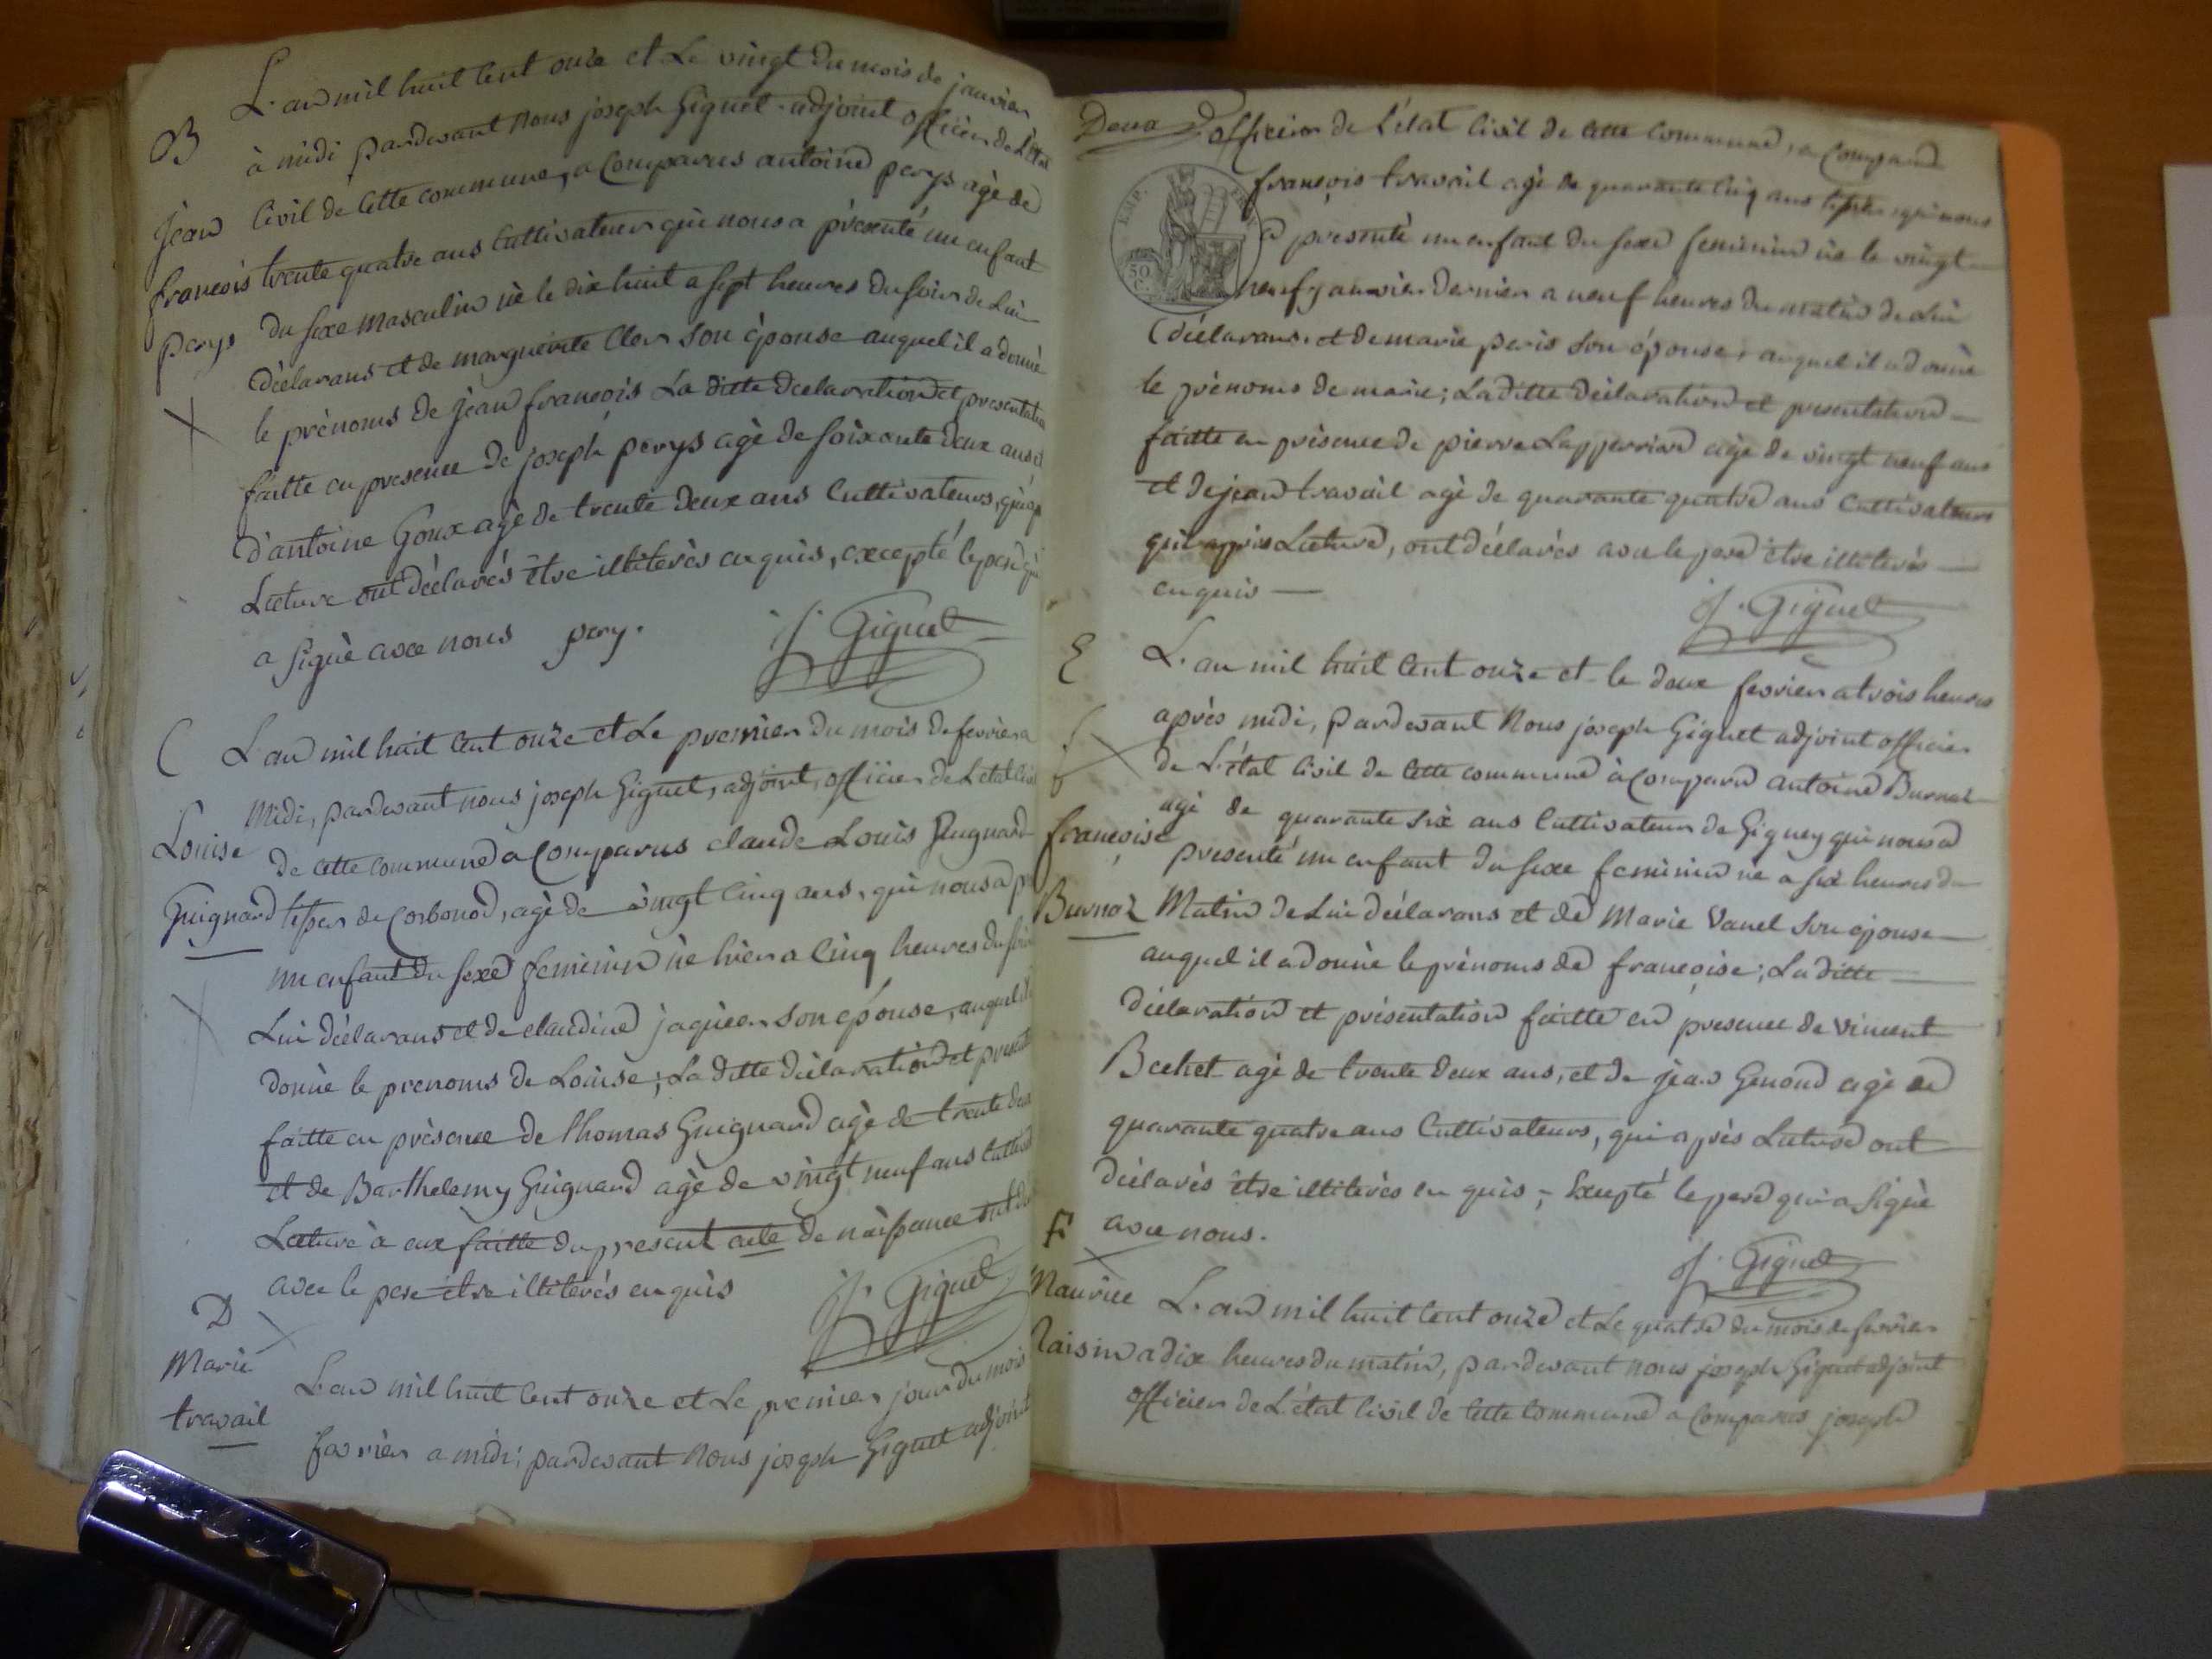 B
L'an mil huit cent onze et Le vingt du mois de janvier
à midi pardevant Nous joseph Giguet adjoint officier de L'état
Jean
françois
perys
civil de cette commune, a comparus antoine perys agé de
trente quatre ans cultivateur qui nous a présenté un enfant
du sexe masculin né le dix huit a sept heures du soir de Lui
déclarans et de marguerite Cler son épouse auquel il a donné
le prénoms de jean françois La ditte déclaration et presentation
faitte en presence de joseph perys agé de soixante deux ans et
d'antoine Goux agé de trente deux ans Cultivateurs, qui ap
Lecture ont déclarés être illiterés enquis, excepté le pere qui
a signé avec nous pery. j. Giguet
C
L'an mil huit cent onze et Le premier du mois de fevrier a
Midi, pardevant nous joseph Giguet, adjoint, officier de L'etat civil
Louise
Guignard
de cette commune a comparus claude Louis Guignard
de Corbonod, agé de vingt cinq ans, qui nous a pr
un enfant du sexe feminin né hier a cinq heures du soir
Lui déclarans et de claudine jaquier son épouse, auquel il
donné le prenoms de Louise; La ditte déclaration et present
faitte en présence de thomas Guignard agé de trente deux
et de Barthelemy Guignard agé de vingt neuf ans cultivat
Lecture à eux faitte du present acte de naissance ont
avec le pere être illiterés enquis j. Giguet
D
Marie
travail
L'an mil huit cent onze et Le premier jour du mois
fevrier a midi; pardevant Nous joseph Giguet adjoint
Deux
officier de L'état civil de cette commune, a comparu
EMP. FRAN.
50 C.
françois travail agé de quarante cinq ans qui nous
a présenté un enfant du sexe feminin né le vingt
neuf janvier dernier a neuf heures du matin de Lui
déclarans et de marie peris son épouse, auquel il a donné
le prénoms de marie; La ditte déclaration et presentation
faitte en présence de pierre Lapperriere agé de vingt neuf ans
et de jean travail agé de quarante quatre ans Cultivateurs
qui après Lecture, ont déclarés avec le pere être illiterés
enquis j. Giguet
E
L'an mil huit cent onze et le deux fevrier a trois heures
après midi, pardevant Nous joseph Giguet adjoint officier
de L'état civil de cette commune à comparu antoine Burnaz
françoise
Burnaz
agé de quarante six ans Cultivateur de Gigney qui nous a
presenté un enfant du sexe feminin né a six heures du
Matin de Lui déclarans et de Marie Vanel son épouse
auquel il a donné le prénoms de françoise; La ditte
déclaration et présentation faitte en presence de vincent
Bechet agé de trente deux ans, et de jean Genoud agé de
quarante quatre ans Cultivateurs, qui après Lecture ont
déclarés être illiterés en quis, Excepté le pere qui a signé
avec nous. j. Giguet
F
Maurice
Raisin
L'an mil huit cent onze et Le quatre du mois de fevrier
a dix heures du matin, pardevant nous joseph Giguet adjoint
officier de L'état civil de cette commune a comparus joseph